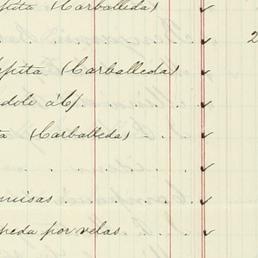 pita (Carballeda)
pita (Carballeda) 2
dole á
ta (Carballeda)
misas
peda por velas